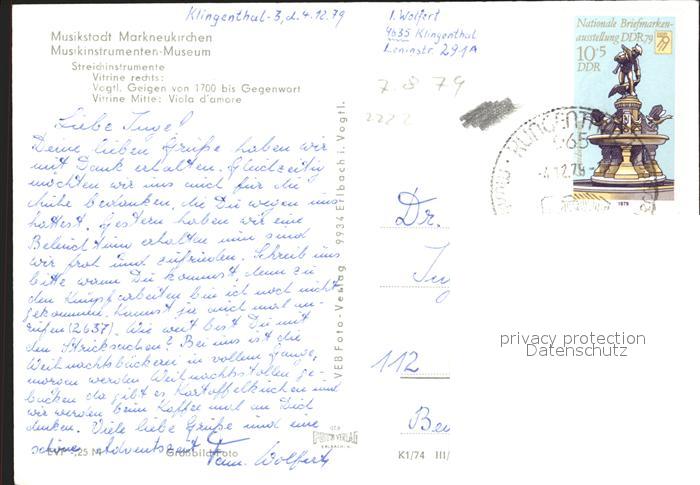 Klingenthal-3, d. 4.12.79
I. Wolfert
9635 Klingenthal
Leninstr. 291A
Nationale Briefmarken-
ausstellung DDR 79
10+5
DDR
1979
Musikstadt Markneukirchen
Musikinstrumenten-Museum
Streichinstrumente
Vitrine rechts:
Vogtl. Geigen von 1700 bis Gegenwort
Vitrine Mitte: Viola d'amore
7 8 79
2222
KLINGENTHAL
-4.12.79
Liebe Inge!
Deine lieben Grüße haben wir
mit Dank erhalten. Gleichzeitig
möchten wir uns auch für die
Mühe bedanken, die Du wegen uns
hattest. Gestern haben wir eine
erhalten nun sind
wir froh und zufrieden. Schreib uns
bitte wann Du kommst, denn zu
den Knüpfarbeiten bin ich noch nicht
gekommen. Kannst ja auch mal an-
rufen (2637). Wie weit bist Du mit
den Stricksachen? Bei uns ist die
Weihnachtsbäckerei in vollem Gange,
morgen werden Weihnachtsstollen ge-
backen da gibt es Kartoffelkuchen und
wir werden beim Kaffee mal an Dich
denken. Viele liebe Grüße und eine
schöne Adventszeit
Fam. Wolfert
VEB Foto-Verlag 9934 Erlbach i. Vogtl.
Dr.
Ing
112
Be
privacy protection
Datenschutz
EVP -,25 M Großbild-Foto
FOTO-VERLAG
ERLBACH
K1/74 III/